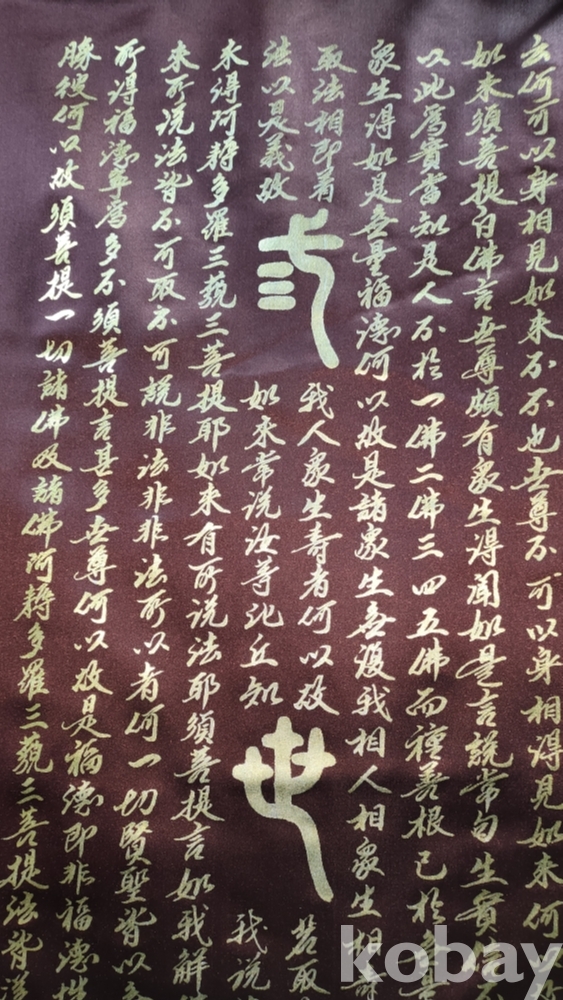 云何可以身相見如来不不也世尊不可以身相得見如来何
如来須菩提白佛言世尊頗有衆生得聞如是言說章句生實信不
以此為實當知是人不於一佛二佛三四五佛而種善根已於無量
衆生得如是無量福德何以故是諸衆生無復我相人相衆生相
取法相即着 我人衆生壽者何以故 若取
法以是義故 如来常說汝等比丘知 我說法
世
未得阿耨多羅三藐三菩提耶如来有所說法耶須菩提言如我解佛
来所說法皆不可取不可說非法非非法所以者何一切賢聖皆以無
所得福德寧為多不須菩提言甚多世尊何以故是福德即非福德性
勝彼何以故須菩提一切諸佛及諸佛阿耨多羅三藐三菩提法皆從
kobay